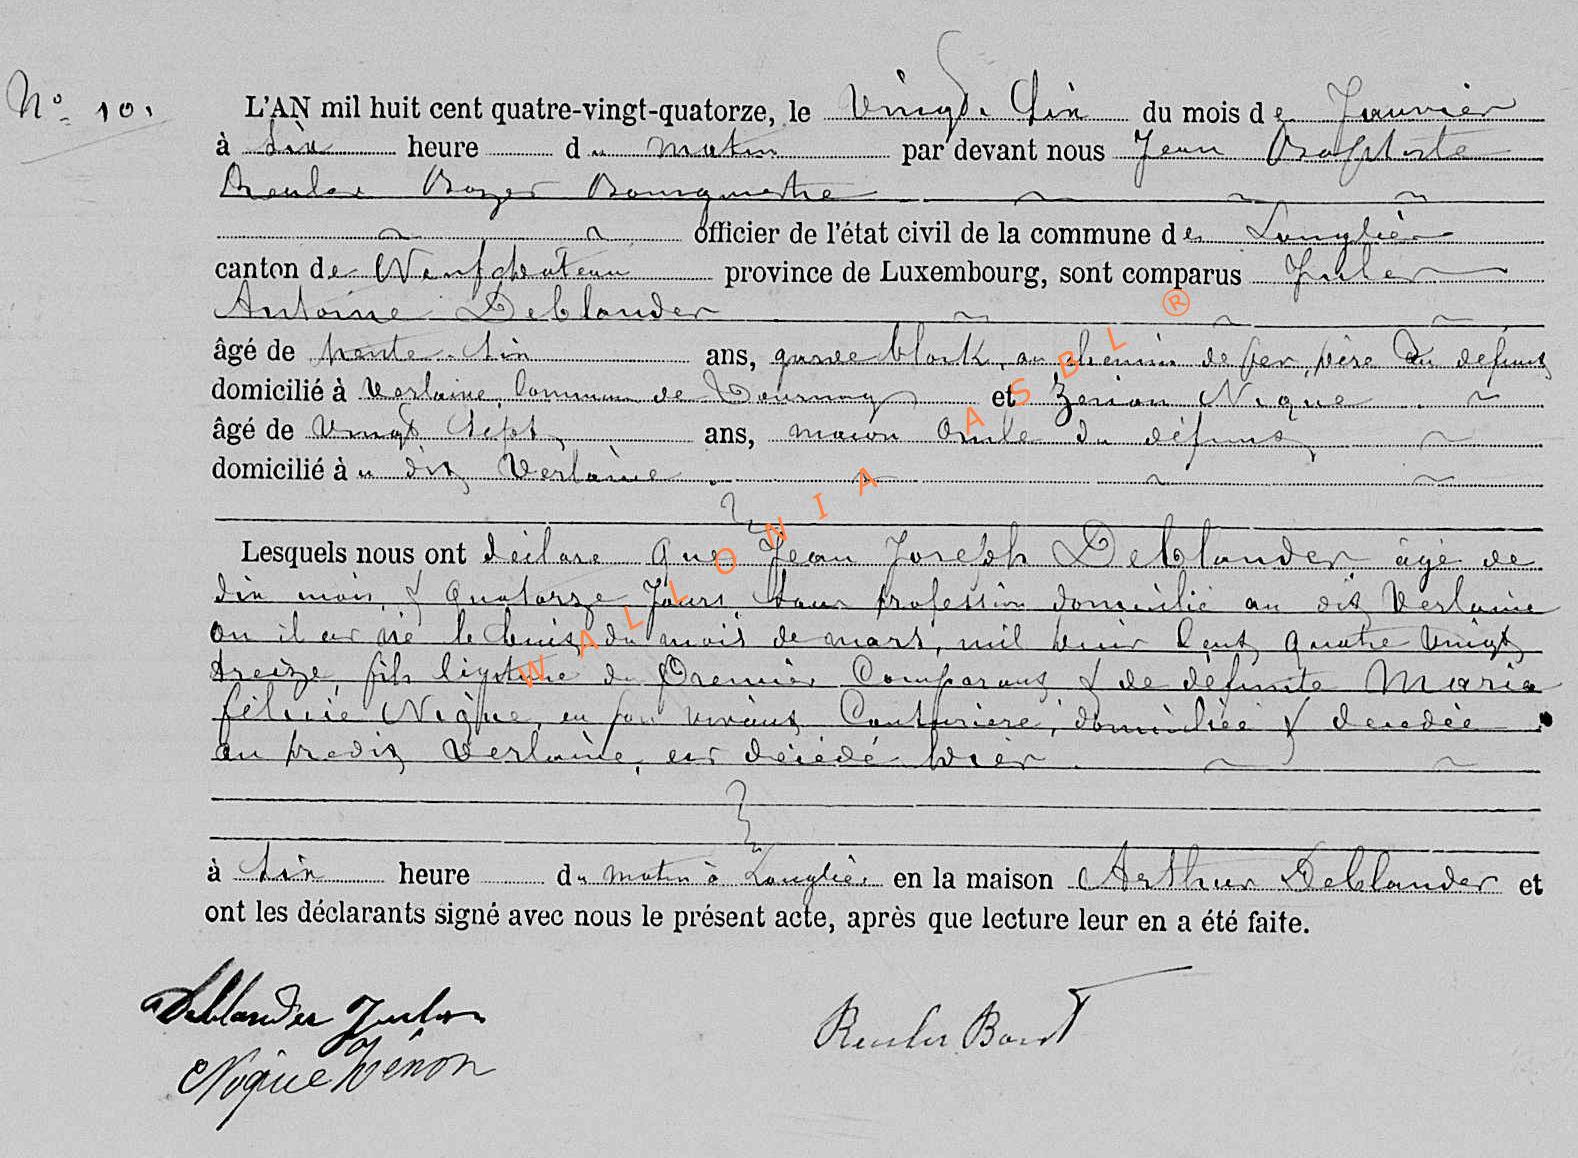 N° 10.
L'AN mil huit cent quatre-vingt-quatorze, le Vingt Six du mois de Janvier
à Six heure du matin par devant nous Jean Baptiste
Reuler Bourgmestre
officier de l'état civil de la commune de Longlier
canton de Neufchateau province de Luxembourg, sont comparus Jules
Antoine Deblander
âgé de trente Six ans, garde block au chemin de fer, père du défunt
domicilié à Verlaine, Commune de Tournay et Zenon Nique
âgé de Vingt Sept ans, macon oncle du défunt
domicilié à u dit Verlaine
Lesquels nous ont déclaré que Jean Joseph Deblander âgé de
dix mois & quatorze Jours, Sans profession domicilié au dit Verlaine
ou il est né le huit du mois de mars, mil huit Cent quatre Vingt
treize, fils ligitime du Premier Comparant & de défunte Maria
félicie Nique, en son vivant Couturiere, domiciliée & decedée
au predit Verlaine, est décédé hier
à Six heure du matin à Longlier en la maison Arthur Deblander et
ont les déclarants signé avec nous le présent acte, après que lecture leur en a été faite.
Deblander Jules
Nique Zénon
Reuler
WALLONIA ASBL ®